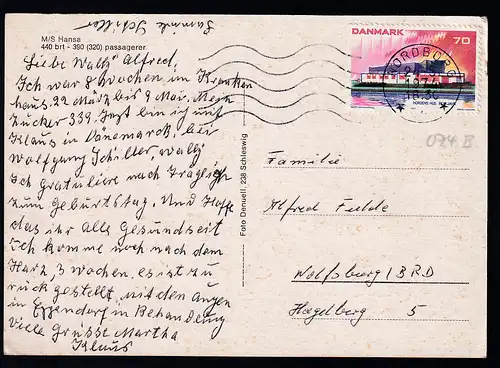 Familie Schiller
M/S Hansa
440 brt - 390 (320) passagerer
Liebe Wally Alfred.
Ich war 8 Wochen im Kranken
haus. 22 März bis 9 Mai. Mein
Zücker 339. Jezt bin ich mit
Klaus in Dänemarck, bei
Wolfgang Schiller, Wally
Ich gratuliere nach träglich
zum Geburtstag. Und Hoffe
das ihr Alle Gesund seit
Ich komme noch nach dem
Harz, 3 Wochen, es ist zu
rück gestellt, mit den Augen
in Eppendorf in Behandlung
Viele Grüsse Martha
Klaus
Foto Denuell, 238 Schleswig
DANMARK
70
NORDENS HUS REYKJAVIK
NORDBORG
1974
074 II
Familie
Alfred Fulde
Wolfsburg/BRD
Hagelberg 5